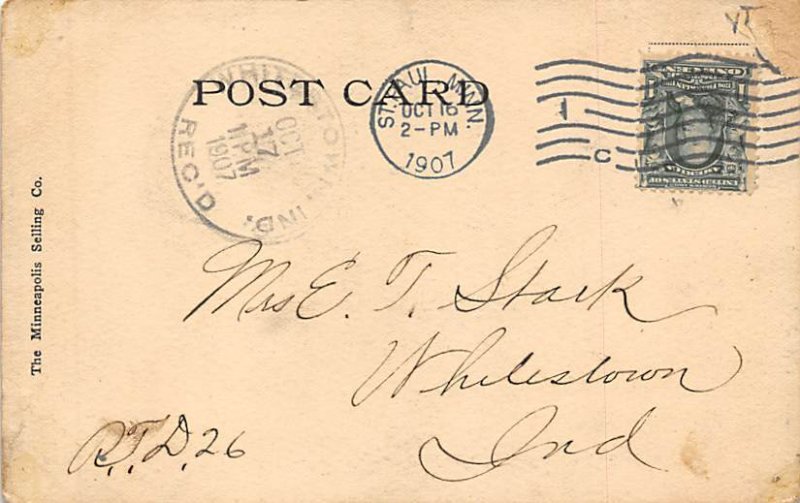 POST CARD
WHITESTOWN, IND.
OCT
17
1 PM
1907
REC'D
ST. PAUL, MINN.
OCT 16
2-PM
1907
1
C
The Minneapolis Selling Co.
Mrs E. T. Stark
Whitestown
Ind
R.F.D. 26